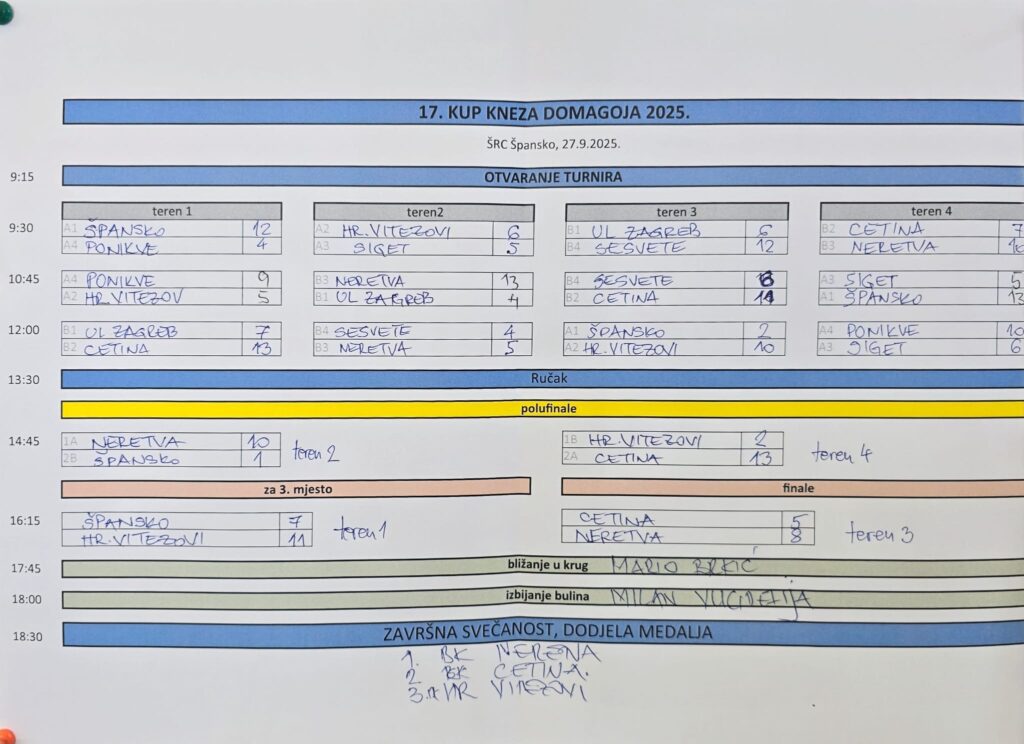 17. KUP KNEZA DOMAGOJA 2025.
ŠRC Špansko, 27.9.2025.
9:15 OTVARANJE TURNIRA
teren 1 teren2 teren 3 teren 4
9:30 A1 ŠPANSKO 12 A2 HR.VITEZOVI 6 B1 UL ZAGREB 6 B2 CETINA 7
A4 PONIKVE 4 A3 SIGET 5 B4 SESVETE 12 B3 NERETVA
10:45 A4 PONIKVE 9 B3 NERETVA 13 B4 SESVETE 8 A3 SIGET 5
A2 HR.VITEZOV 5 B1 UL ZAGREB 4 B2 CETINA 11 A1 ŠPANSKO 13
12:00 B1 UL ZAGREB 7 B4 SESVETE 4 A1 ŠPANSKO 2 A4 PONIKVE 10
B2 CETINA 13 B3 NERETVA 5 A2 HR.VITEZOVI 10 A3 SIGET 6
13:30 Ručak
polufinale
14:45 1A NERETVA 10 1B HR.VITEZOVI 2
2B ŠPANSKO 1 teren 2 2A CETINA 13 teren 4
za 3. mjesto finale
16:15 ŠPANSKO 7 CETINA 5
HR.VITEZOVI 11 teren 1 NERETVA 8 teren 3
17:45 bližanje u krug MARIO BRKIĆ
18:00 izbijanje bulina MILAN
18:30 ZAVRŠNA SVEČANOST, DODJELA MEDALJA
1. BK
2 BK CETINA.
3. HR VITEZOVI